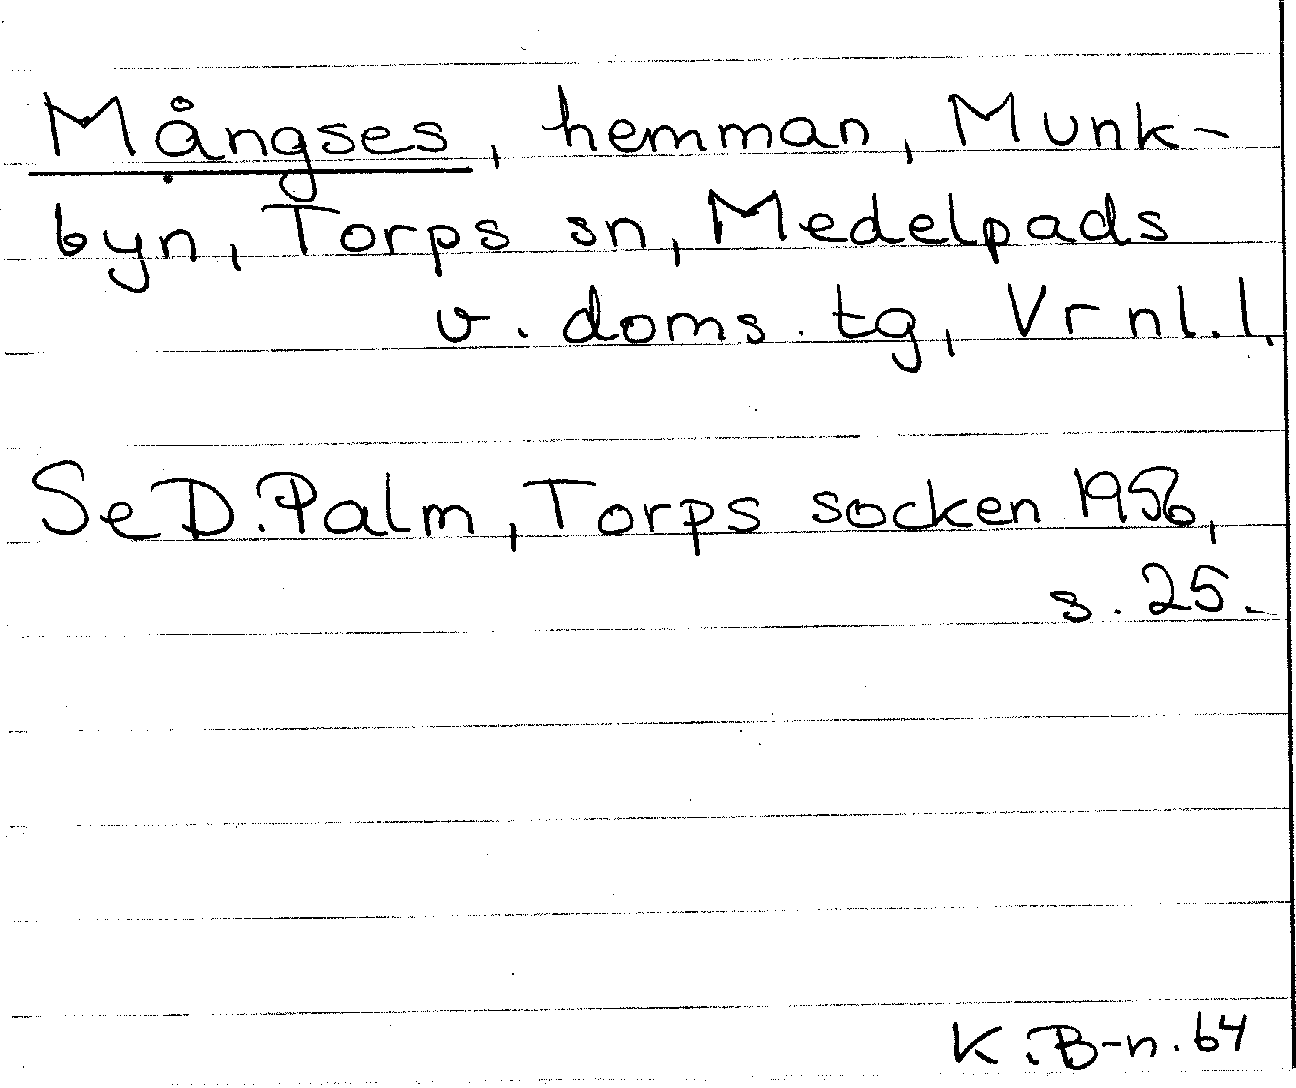 Mångses, hemman, Munk-
byn, Torps sn, Medelpads
v. doms. tg, Vrnl.l.
Se D. Palm, Torps socken 1956,
s. 25.
K. B-n. 64